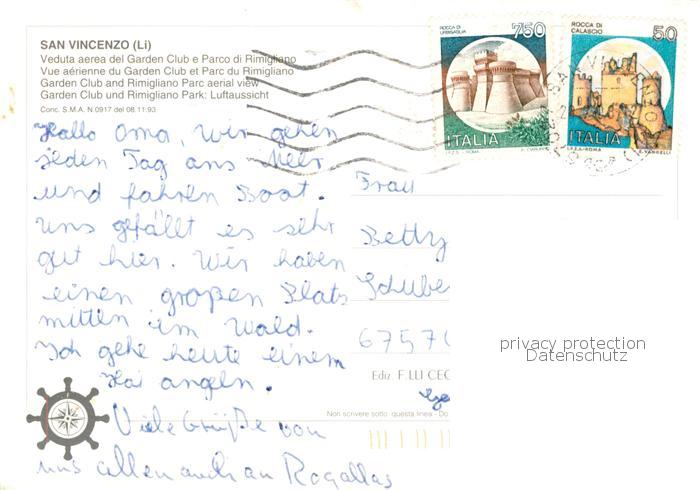 SAN VINCENZO (Li)
Veduta aerea del Garden Club e Parco di Rimigliano
Vue aérienne du Garden Club et Parc du Rimigliano
Garden Club and Rimigliano Parc aerial view
Garden Club und Rimigliano Park: Luftaussicht
Conc. S.M.A. N.0917 del 08.11.93
ROCCA DI
URBISAGLIA
750
ITALIA
I.P.Z.S. - ROMA
ROCCA DI
CALASCIO
50
ITALIA
I.P.Z.S. - ROMA E. VANGELLI
Hallo Oma, Wir gehen
jeden Tag ans Meer
und fahren Boot.
uns gefällt es sehr
gut hier. Wir haben
einen großen Platz
mitten im Wald.
Ich gehe heute einem
Hai angeln.
Viele Grüße von
uns allen auch an Rogallas
Frau
Betty
Schube
6757
Ediz. F.LLI CEC
Non scrivere sotto questa linea - Do
privacy protection
Datenschutz